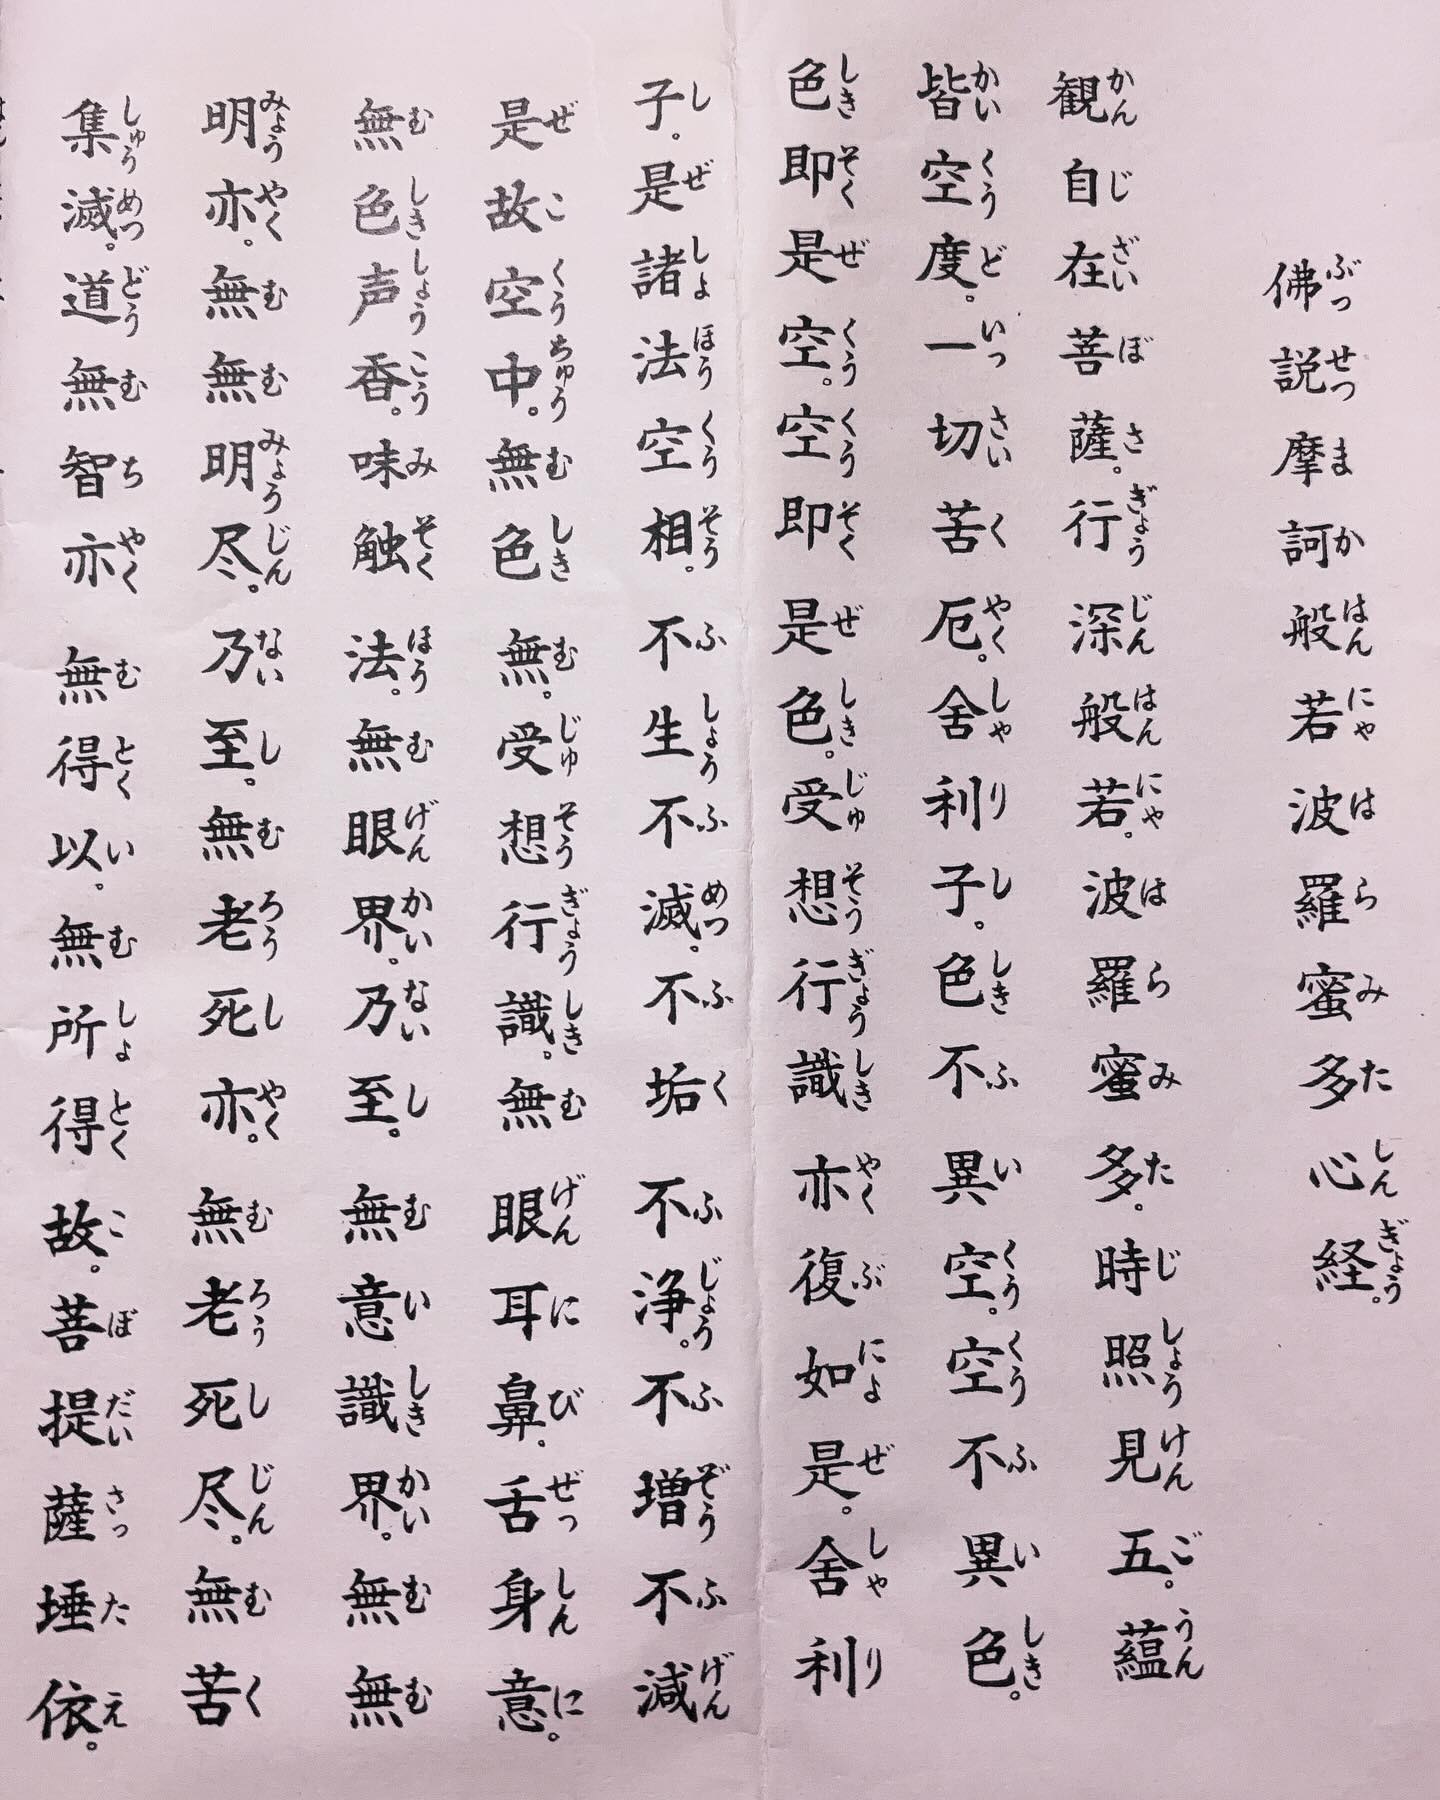 佛説摩訶般若波羅蜜多心経。
観自在菩薩。行深般若。波羅蜜多。時照見五。蘊
皆空度。一切苦厄。舍利子。色不異空。空不異色。
色即是空。空即是色。受想行識亦復如是。舍利
子。是諸法空相。不生不滅。不垢不浄。不増不減
是故空中。無色無。受想行識。無眼耳鼻。舌身意。
無色。声香。味触法。無眼界。乃至。無意識界。無無
明亦。無無明尽。乃至。無老死亦。無老死尽。無苦
集滅。道無智亦無得以。無所得故。菩提薩埵依。